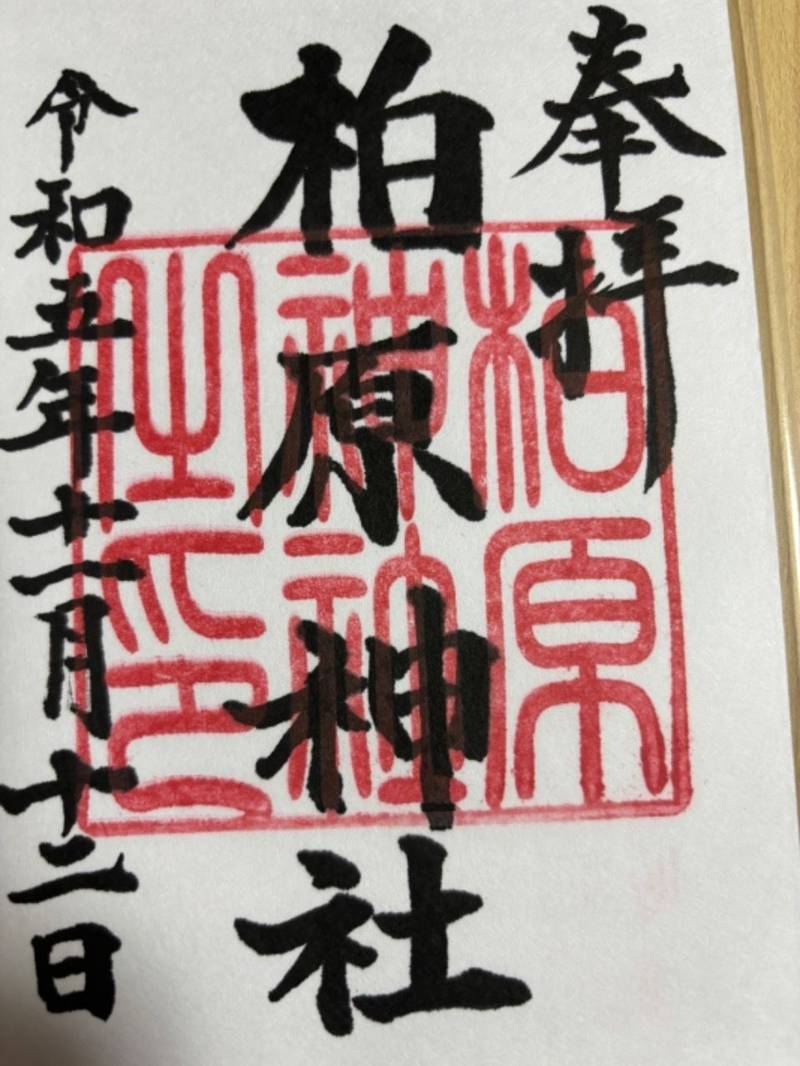 奉拝
柏原神社
令和五年十一月十二日
柏原
神社
之印